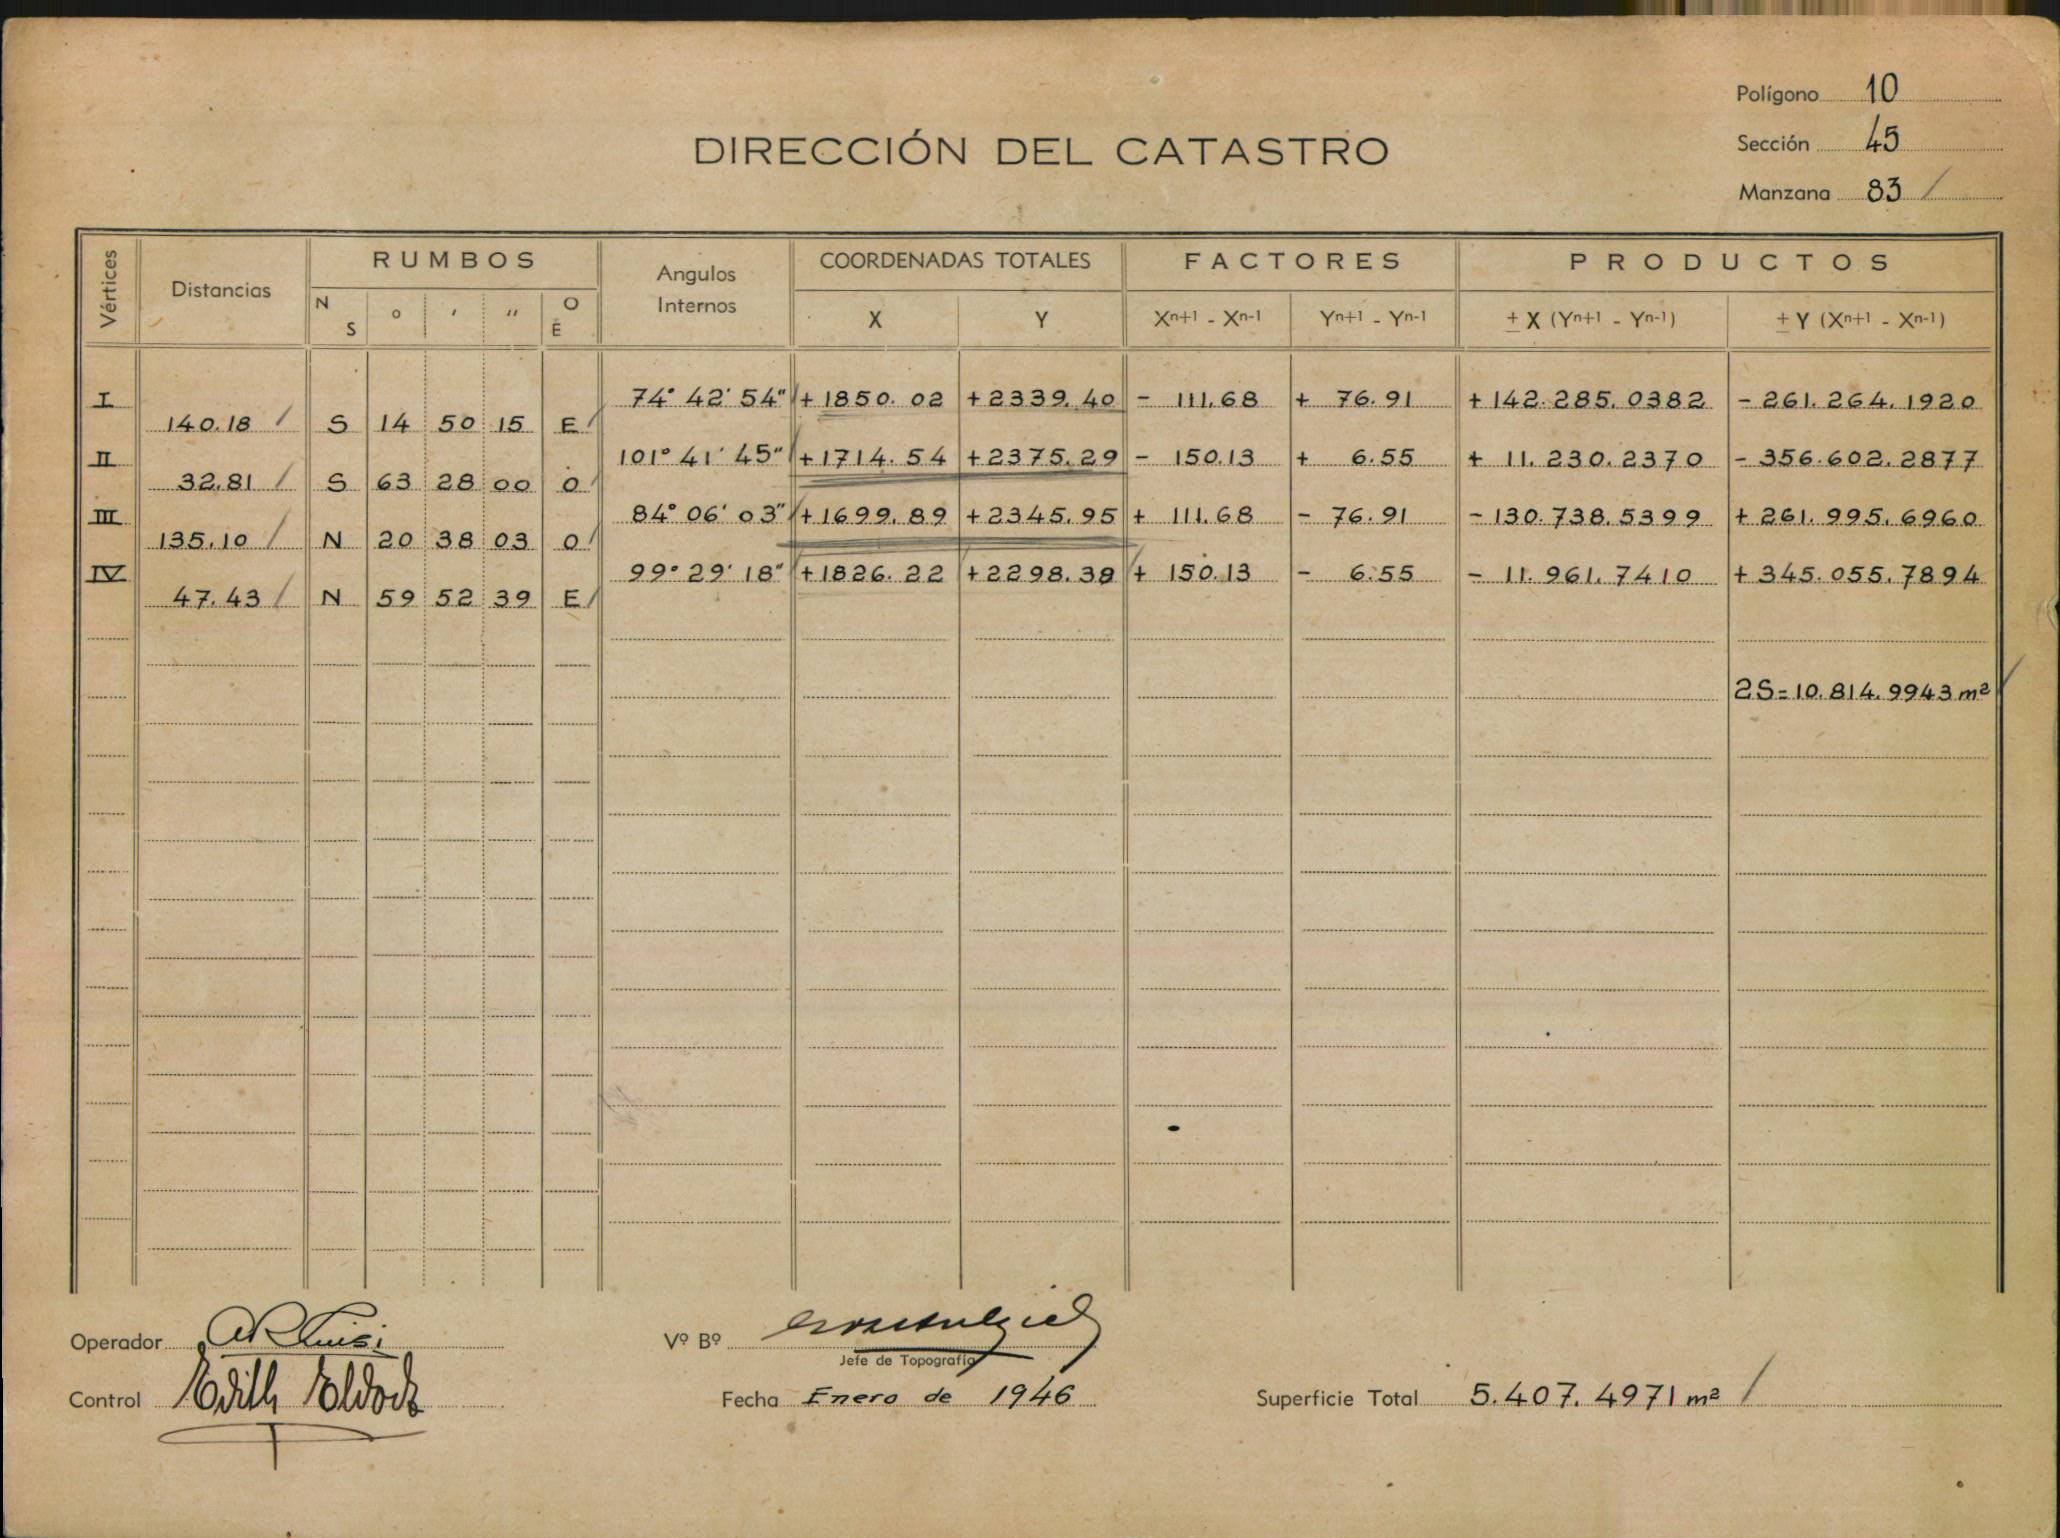 Polígono 10
Sección 45
Manzana 83
DIRECCIÓN DEL CATASTRO
Vértices Distancias RUMBOS Angulos Internos COORDENADAS TOTALES FACTORES PRODUCTOS
N S ° ' " O E X Y Xn+1 - Xn-1 Yn+1 - Yn-1 ± X (Yn+1 - Yn-1) ± Y (Xn+1 - Xn-1)
I 74° 42' 54" +1850.02 +2339.40 - 111.68 + 76.91 +142.285.0382 - 261.264.1920
140.18 S 14 50 15 E
II 101° 41' 45" +1714.54 +2375.29 - 150.13 + 6.55 + 11.230.2370 - 356.602.2877
32.81 S 63 28 00 O
III 84° 06' 03" +1699.89 +2345.95 + 111.68 - 76.91 -130.738.5399 + 261.995.6960
135.10 N 20 38 03 O
IV 99° 29' 18" +1826.22 +2298.38 + 150.13 - 6.55 - 11.961.7410 + 345.055.7894
47.43 N 59 52 39 E
2S=10.814.9943 m²
Operador
Vº Bº
Jefe de Topografía
Control Edith
Fecha Enero de 1946
Superficie Total 5.407.4971 m²